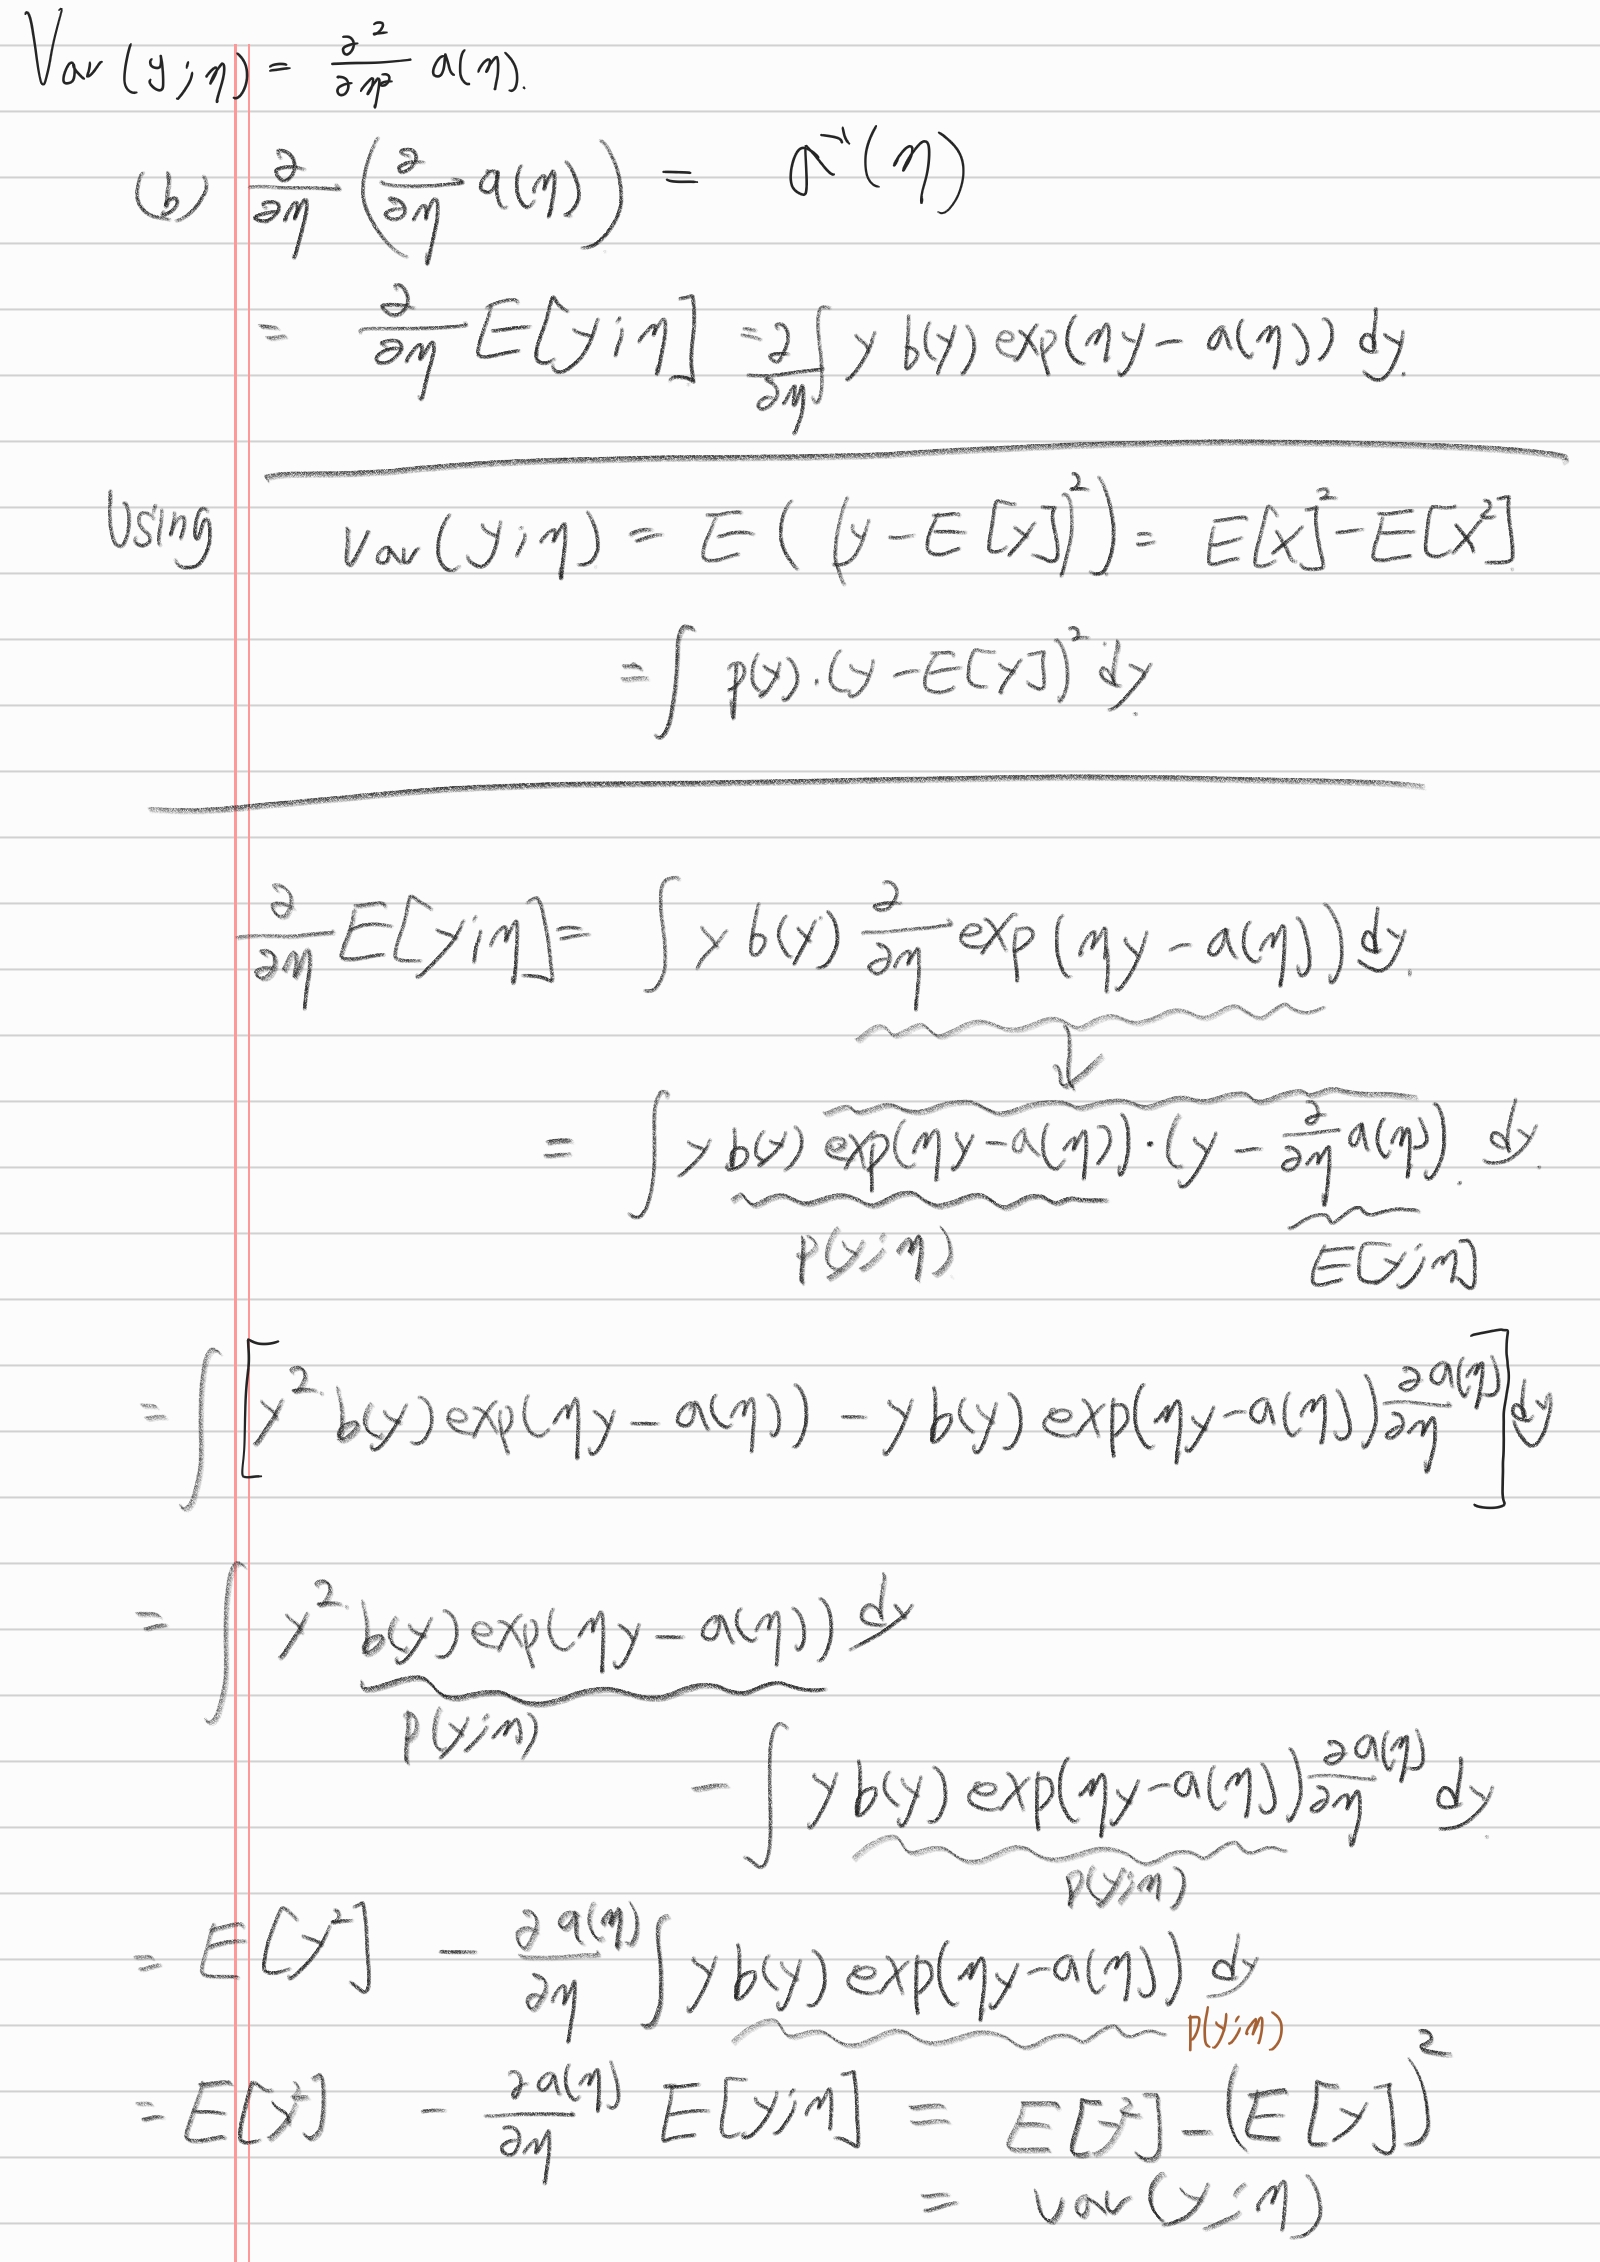 Var(y;η) = ∂²/∂η² a(η).
(b) ∂/∂η (∂/∂η a(η)) = a''(η)
= ∂/∂η E[y;η] = ∂/∂η ∫ y b(y) exp(ηy − a(η)) dy.
Using var(y;η) = E((y − E[y])²) = E[X]² − E[X²]
= ∫ p(y)·(y − E[y])² dy.
∂/∂η E[y;η] = ∫ y b(y) ∂/∂η exp(ηy − a(η)) dy.
= ∫ y b(y) exp(ηy − a(η))·(y − ∂/∂η a(η)). dy.
p(y;η) E[y;η]
= ∫ [y² b(y) exp(ηy − a(η)) − y b(y) exp(ηy − a(η)) ∂a(η)/∂η] dy
= ∫ y² b(y) exp(ηy − a(η)) dy
p(y;η)
− ∫ y b(y) exp(ηy − a(η)) ∂a(η)/∂η dy.
p(y;η)
= E[y²] − ∂a(η)/∂η ∫ y b(y) exp(ηy − a(η)) dy
p(y;η)
= E[y²] − ∂a(η)/∂η E[y;η] = E[y²] − (E[y])²
= var(y;η)